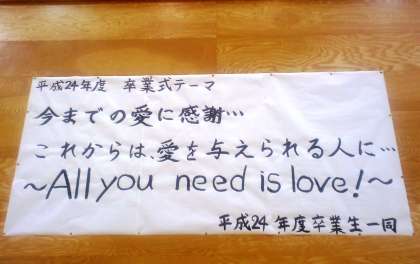 平成24年度 卒業式テーマ
今までの愛に感謝…
これからは、愛を与えられる人に…
～All you need is love!～
平成24年度卒業生一同